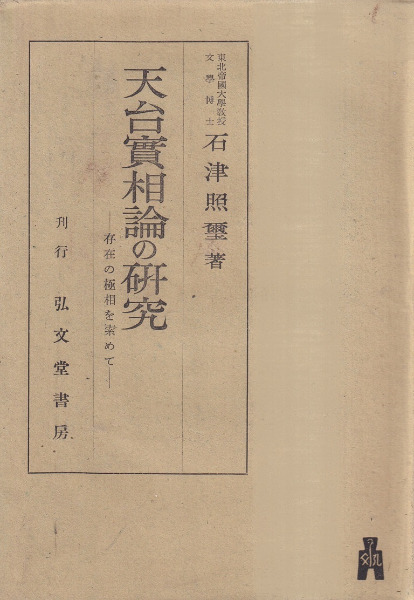 東北帝國大學教授
文學博士
石津照璽著
天台實相論の研究
——存在の極相を索めて——
刊行 弘文堂書房